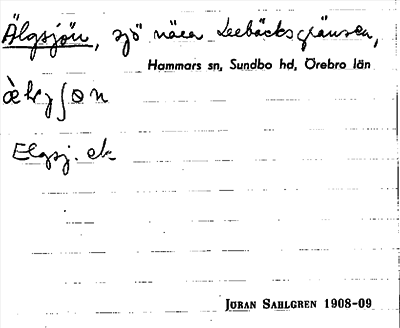 Älgsjön, sjö nära Leebäcksgränsen,
Hammars sn, Sundbo hd, Örebro län
Elgsj. ek
JÖRAN SAHLGREN 1908-09